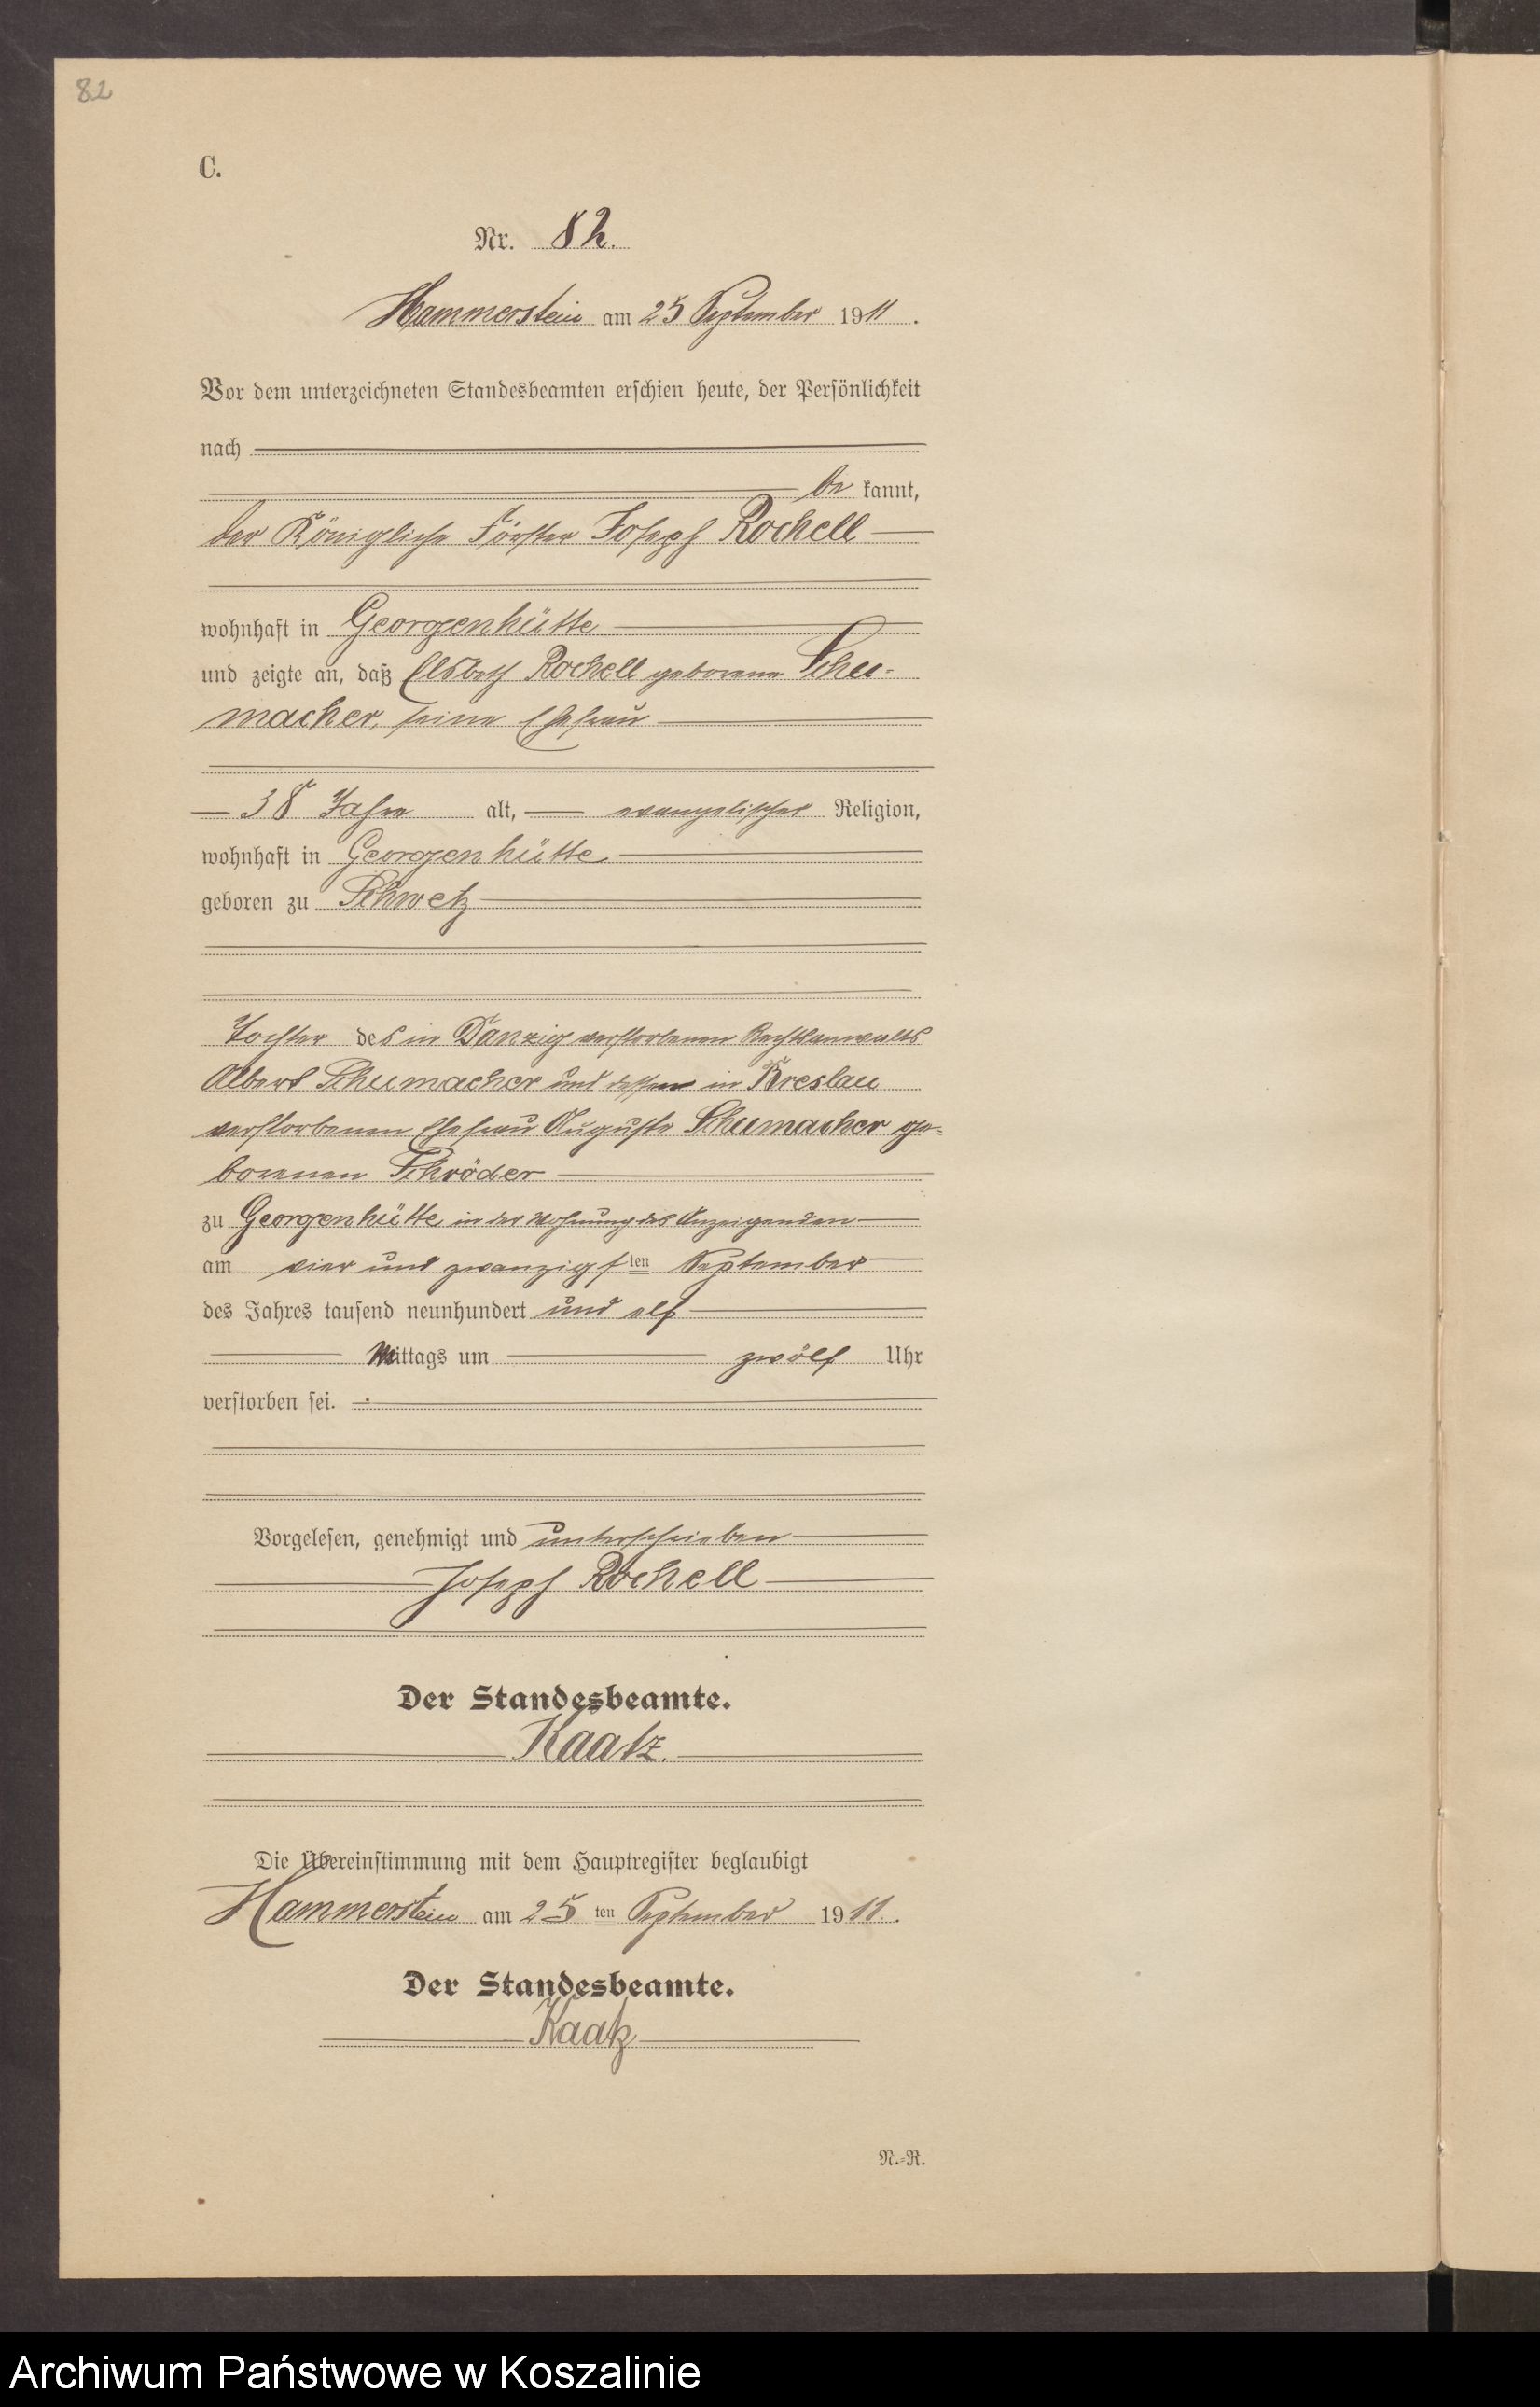 82
C.
Nr. 82.
Hammerstein am 25 September 1911.
Vor dem unterzeichneten Standesbeamten erschien heute, der Persönlichkeit
nach
be kannt,
der Königliche Förster Joseph Rochell
wohnhaft in Georgenhütte
und zeigte an, daß Elsbeth Rochell geborene Schu-
macher, seine Ehefrau
38 Jahre alt, evangelischer Religion,
wohnhaft in Georgenhütte
geboren zu Schwetz
Tochter des in Danzig verstorbenen Rechtsanwalts
Albert Schumacher und dessen in Breslau
verstorbenen Ehefrau Auguste Schumacher ge-
borenen Schröder
zu Georgenhütte in der Wohnung des Anzeigenden
am vier und zwanzigsten September
des Jahres tausend neunhundert und elf
Mittags um zwölf Uhr
verstorben sei.
Vorgelesen, genehmigt und unterschrieben
Joseph Rochell
Der Standesbeamte.
Kaatz.
Die Übereinstimmung mit dem Hauptregister beglaubigt
Hammerstein am 25ten September 1911.
Der Standesbeamte.
Kaatz
N.-R.
Archiwum Państwowe w Koszalinie